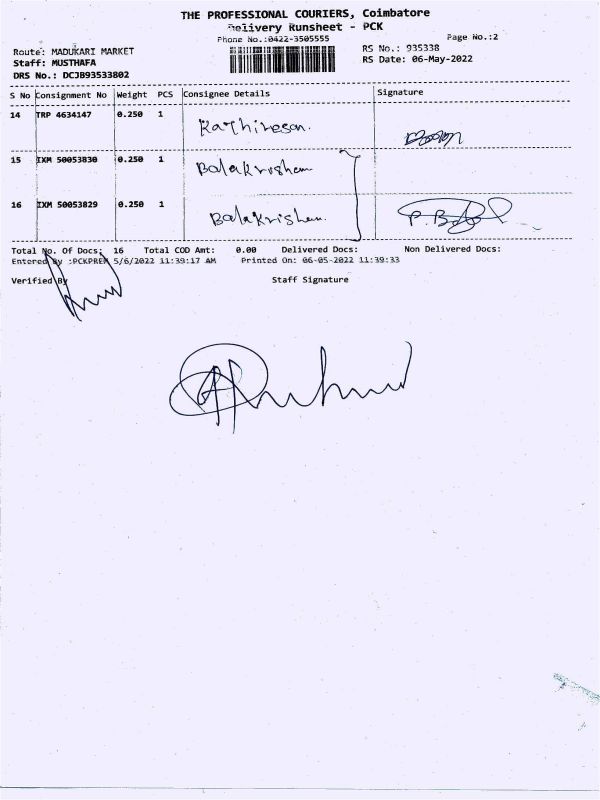 THE PROFESSIONAL COURIERS, Coimbatore
Delivery Runsheet - PCK
Phone No.:0422-3505555
Page No.:2
Route: MADUKARI MARKET
RS No.: 935338
Staff: MUSTHAFA
RS Date: 06-May-2022
DRS No.: DCJB93533802
S No Consignment No Weight PCS Consignee Details Signature
14 TRP 4634147 0.250 1 Kathiresan.
15 IXM 50053830 0.250 1 Balakrishnan
16 IXM 50053829 0.250 1 Balakrishnan.
Total No. Of Docs: 16 Total COD Amt: 0.00 Delivered Docs: Non Delivered Docs:
Entered By :PCKPREM 5/6/2022 11:39:17 AM Printed On: 06-05-2022 11:39:33
Verified By Staff Signature